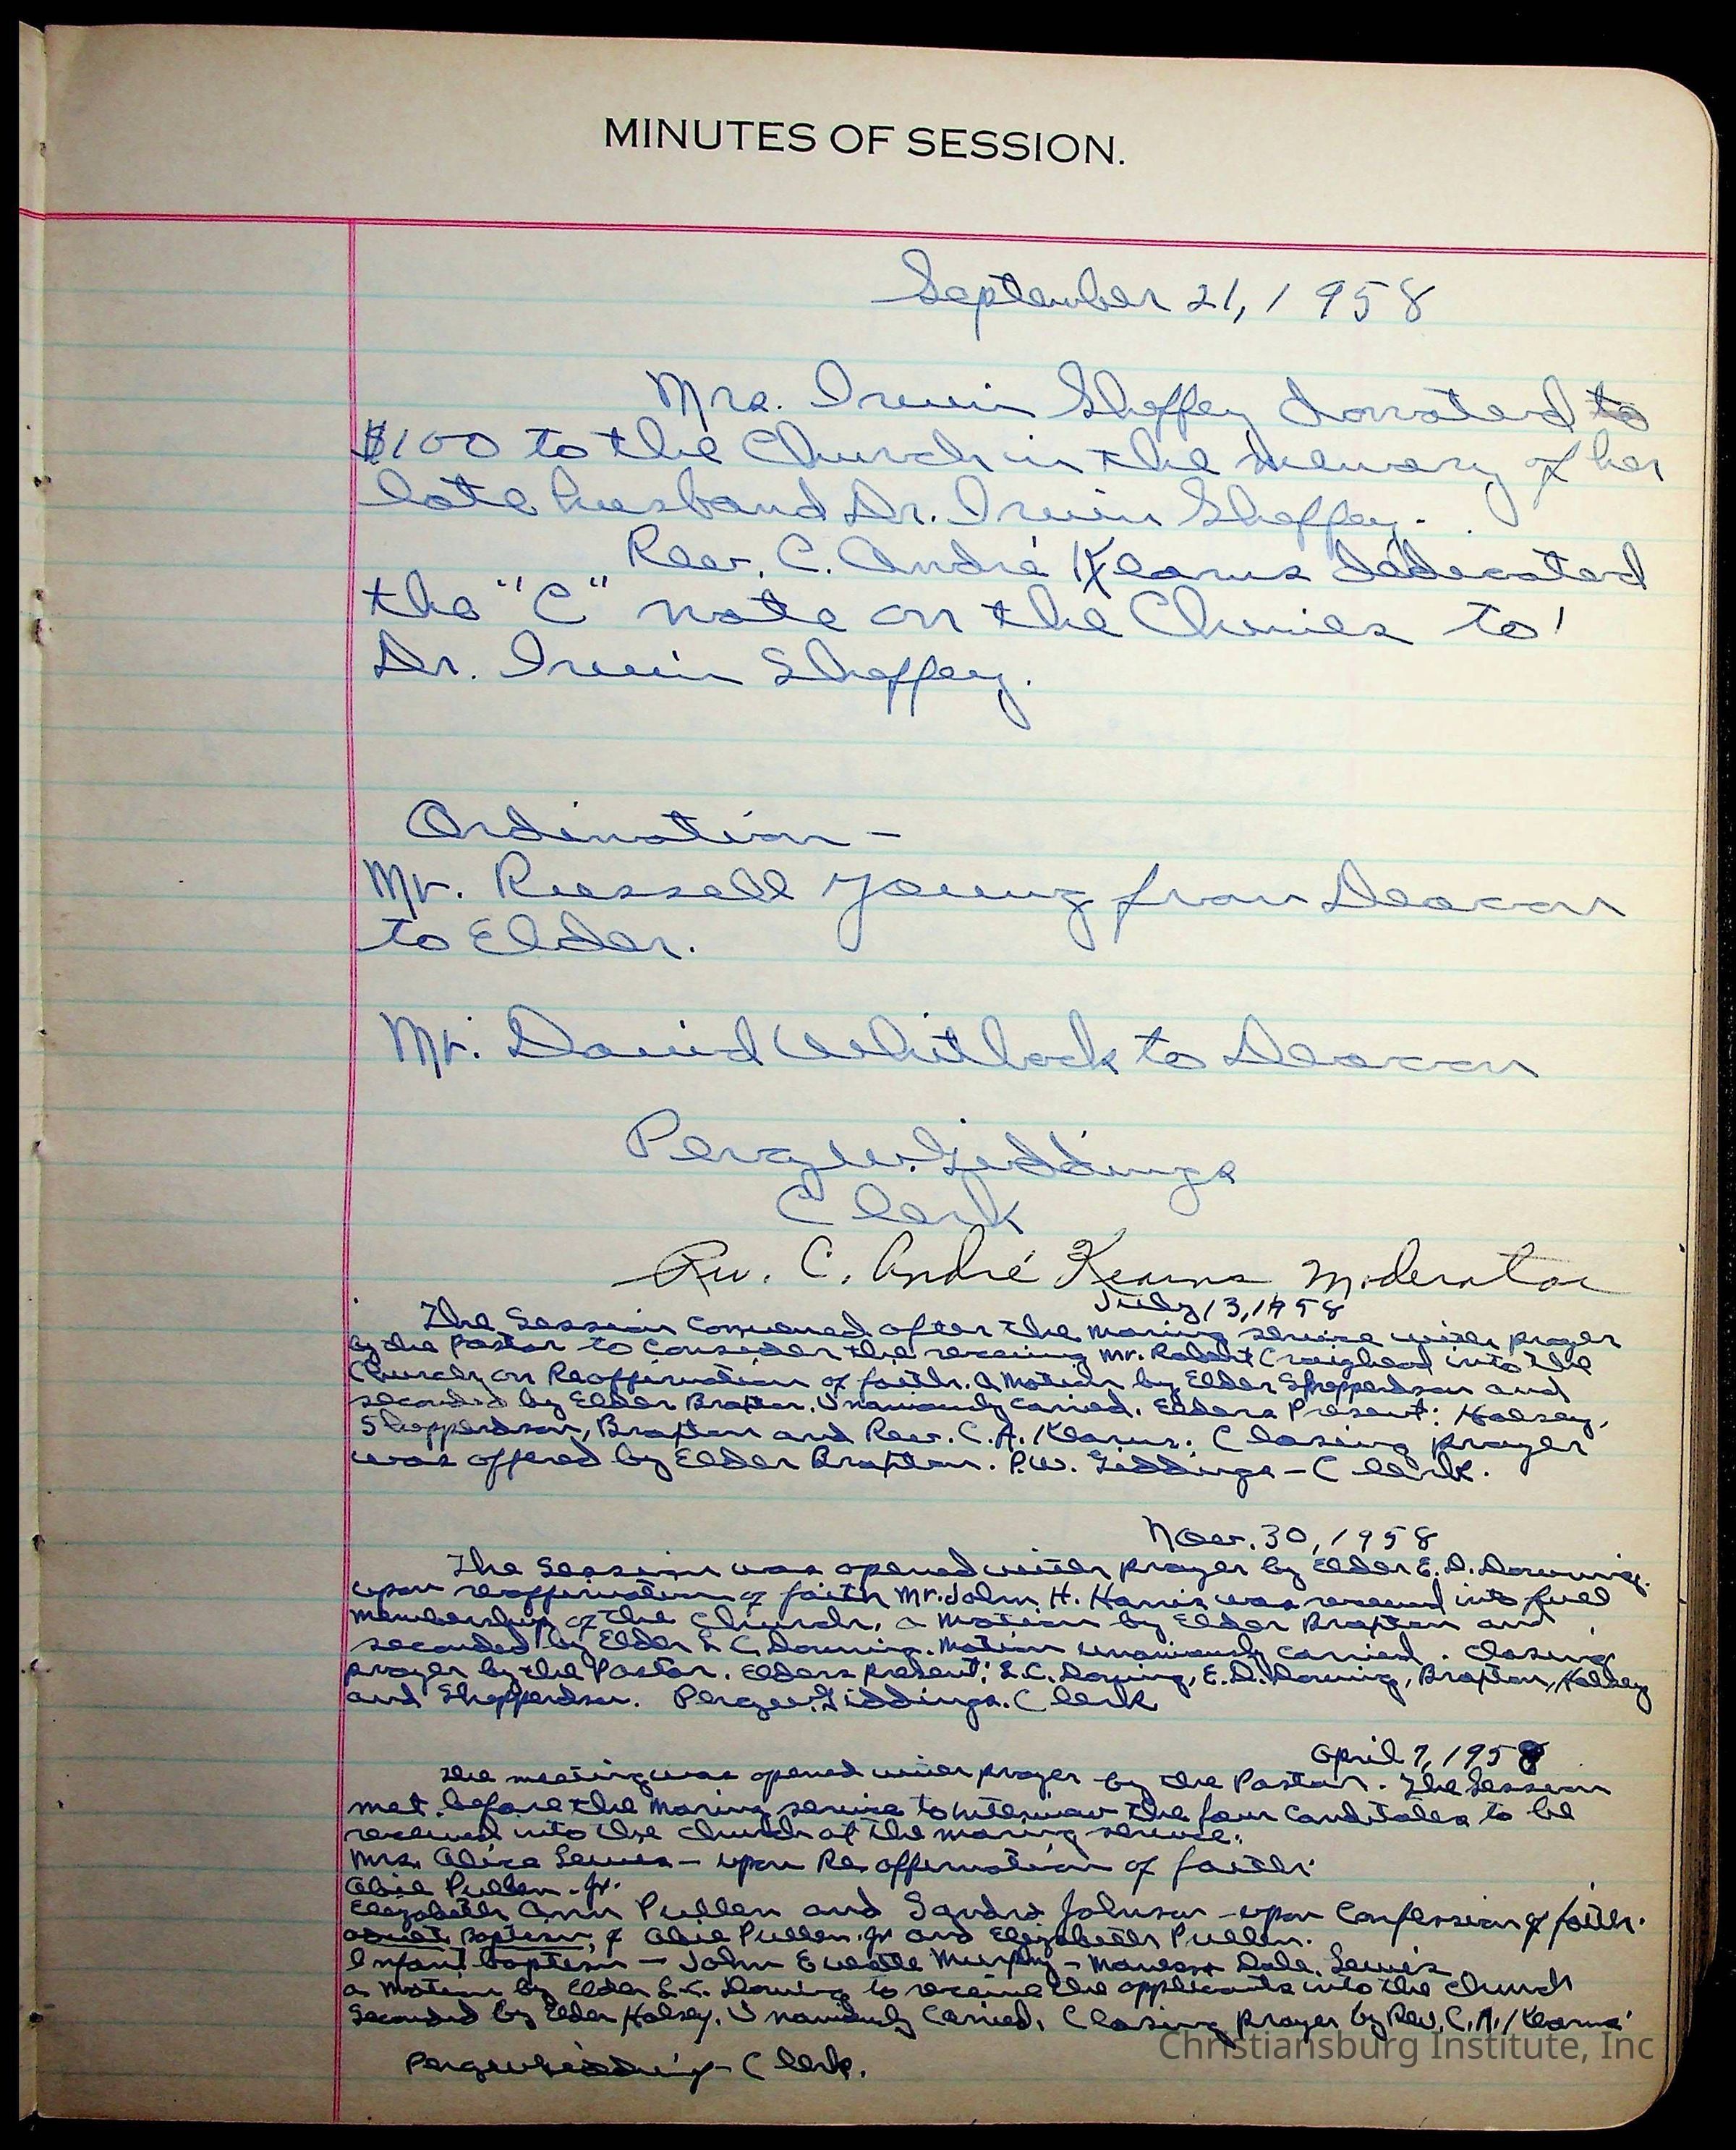 MINUTES OF SESSION.
September 21, 1958
Mrs. Irwin Sheffey donated to
$100 to the Church in the memory of her
late husband Dr. Irwin Sheffey.
Rev. C. André Kearns dedicated
the "C" note on the Chimes to
Dr. Irwin Sheffey.
Ordination -
Mr. Russell Young from Deacon
to Elder.
Mr. David Whitlock to Deacon
Percy W. Giddings
Clerk
Rev. C. André Kearns Moderator
July 13, 1958
The Session convened after the morning service with prayer
by the Pastor to consider the receiving Mr. Robert Craighead into the
Church on Reaffirmation of faith. A motion by Elder Shepperdson and
seconded by Elder Braxton. Unamously carried. Elders Present: Halsey,
Shepperdson, Braxton and Rev. C.A. Kearns. Closing prayer
was offered by Elder Braxton. P.W. Giddings - Clerk.
Nov. 30, 1958
The Session was opened with prayer by Elder E.D. Downing.
upon reaffirmation of faith Mr. John H. Harris was received into full
membership of the Church. a motion by Elder Braxton and
seconded by Elder L.C. Downing. Motion unamiously carried. Closing
prayer by the Pastor. Elders present: L.C. Downing, E.D. Downing, Braxton, Halsey
and Shepperdson. Percy W. Giddings. Clerk
April 7, 195
The meeting was opened with prayer by the Pastor. The Session
met before the morning service to interview the four canditates to be
received into the church at the morning service.
Mrs. Alice Lewis - upon Reaffirmation of faith.
Abie Pullen. Jr.
Elizabeth Ann Pullen and Sandra Johnson - upon Confession of faith.
Baptism of Abie Pullen. Jr and Elizabeth Pullen.
Infant baptism - John Evette Murphy - Dale Lewis
a motion by Elder L.C. Downing to receive the applicants into the church
Seconded by Elder Halsey. Unamiously Carried. Closing prayer by Rev. C.A. Kearns
Percy W Giddings - Clerk.
Christiansburg Institute, Inc